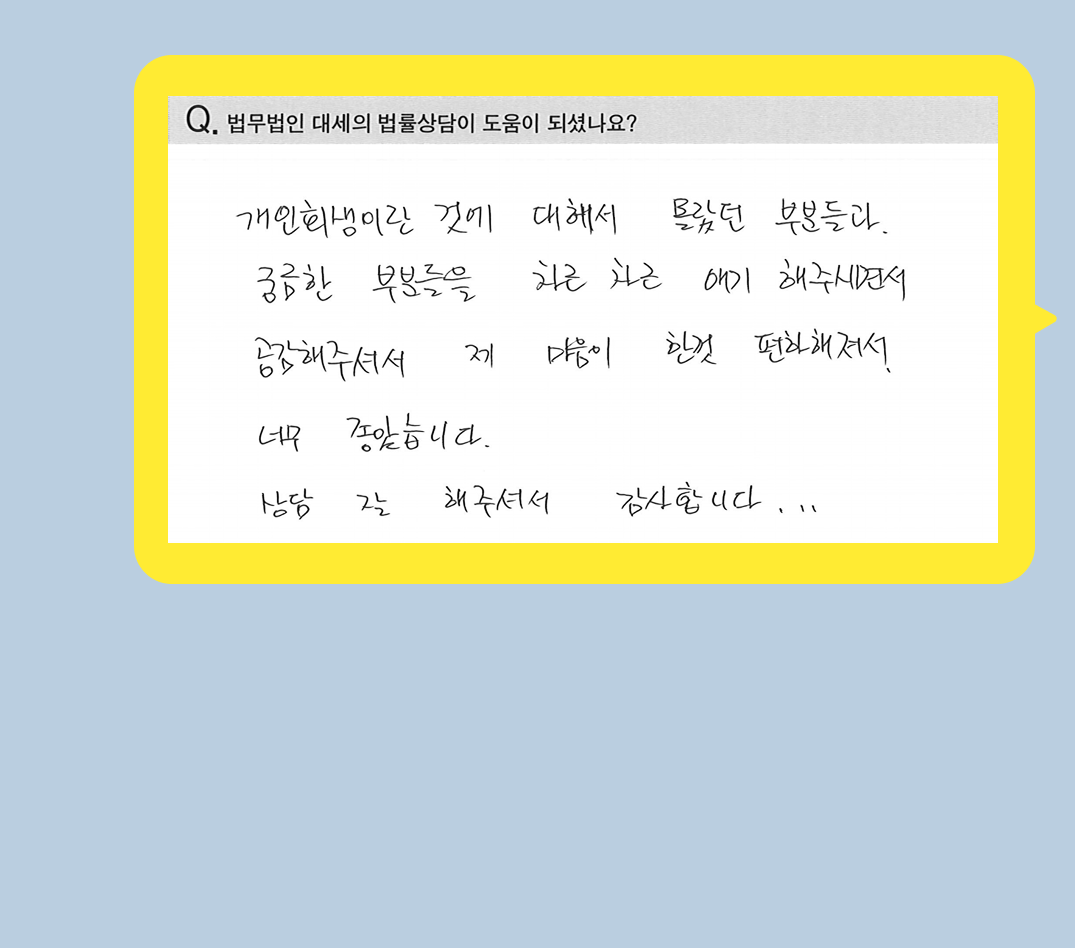 Q. 법무법인 대세의 법률상담이 도움이 되셨나요?
개인회생이란 것에 대해서 몰랐던 부분들과.
궁금한 부분들을 차근 차근 얘기 해주시면서
공감해주셔서 제 마음이 한껏 편하해져서.
너무 좋았습니다.
상담 잘 해주셔서 감사합니다...